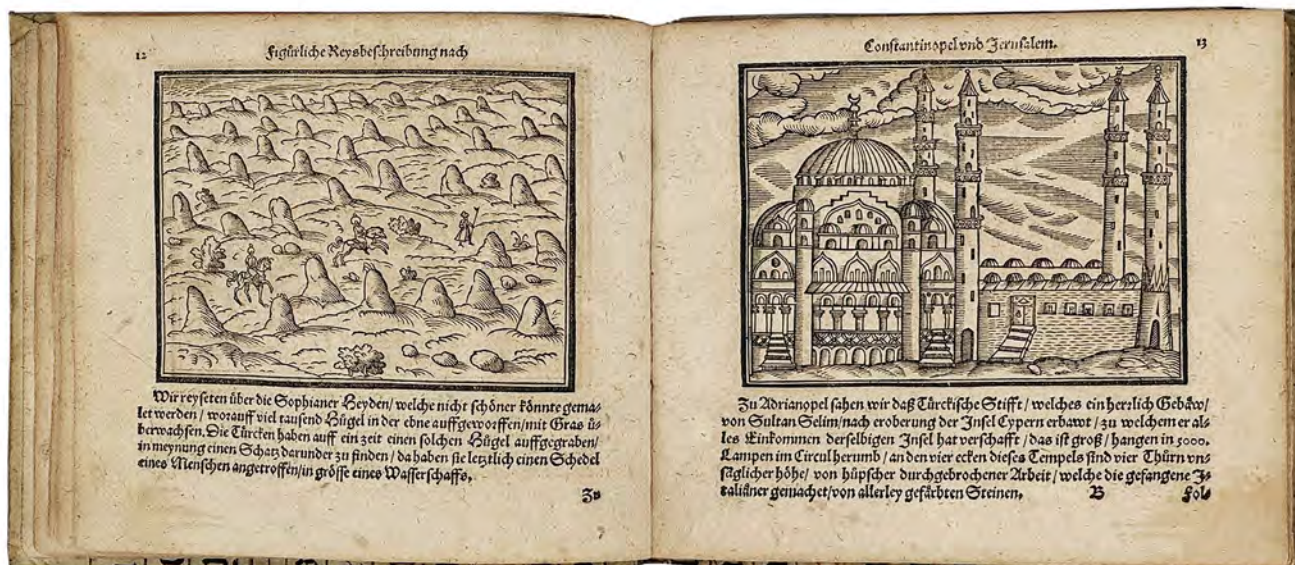 12 Figürliche Reysbeschreibung nach
Wir reyseten über die Sophianer Heyden/ welche nicht schöner könnte gema-
let werden/ worauff viel tausend Hügel in der ebne auffgeworffen/ mit Gras ü-
berwachsen. Die Türcken haben auff ein zeit einen solchen Hügel auffgegraben/
in meynung einen Schatz darunder zu finden/ da haben sie letztlich einen Schedel
eines Menschen angetroffen/ in grösse eines Wasserschaffs.
Zu
Constantinopel vnd Jerusalem. 13
Zu Adrianopel sahen wir daß Türckische Stifft/ welches ein herrlich Gebäw/
von Sultan Selim/ nach eroberung der Insel Cypern erbawt/ zu welchem er al-
les Einkommen derselbigen Insel hat verschafft/ das ist groß/ hangen in 5000.
Lampen im Circul herumb/ an den vier ecken dieses Tempels sind vier Thürn vn-
säglicher höhe/ von hüpscher durchgebrochener Arbeit/ welche die gefangene J-
taliäner gemachet/ von allerley gefärbten Steinen. B Fol-